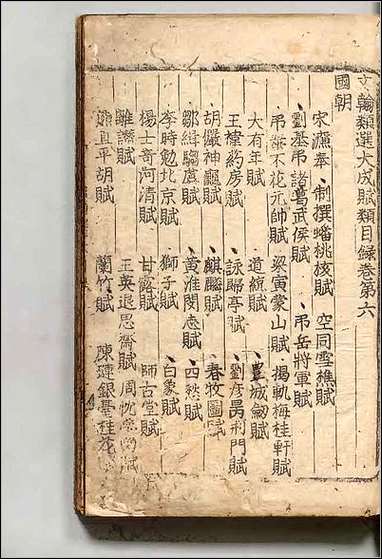 文翰類選大成賦類目録卷第六
國朝
宋濂奉 制撰蟠桃核賦 空同雪樵賦
劉基弔諸葛武侯賦 弔岳將軍賦
弔泰不花元帥賦 梁寅蒙山賦 揭軌梅桂軒賦
大有年賦 道統賦 豐城劒賦
王禕藥房賦 詠歸亭賦 劉彥昺荆門賦
胡儼神龜賦 麒麟賦 春牧圖賦
鄒緝騶虞賦 黃淮閔志賦 四愁賦
李時勉北京賦 獅子賦 白象賦
楊士奇河清賦 甘露賦 師古堂賦
王英退思齋賦 周忱
直平胡賦 蘭竹賦 陳璉